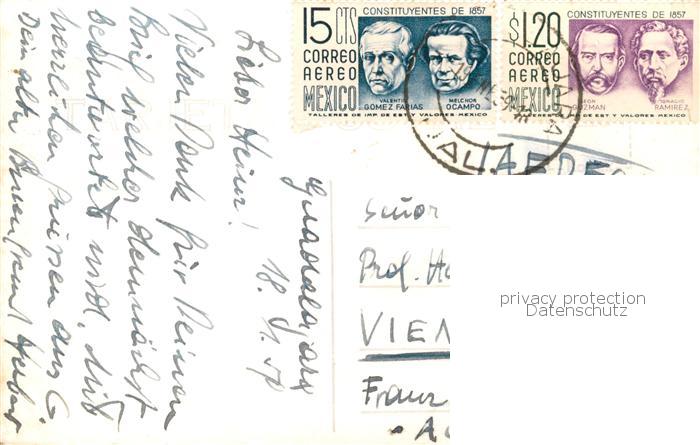 15 CTS
CONSTITUYENTES DE 1857
CORREO
AEREO
MEXICO
VALENTIN
GOMEZ FARIAS
MELCHOR
OCAMPO
TALLERES DE IMP. DE EST. Y VALORES MEXICO
$1.20
CONSTITUYENTES DE 1857
CORREO
AEREO
MEXICO
LEON
GUZMAN
IGNACIO
RAMIREZ
ERES DE IMP. DE EST. Y VALORES MEXICO
JAL.
Guadalajara
18.
Lieber Heinz!
Vielen Dank für Deinen
Brief, welcher demnächst
beantwortet wird. Mit
herzlichen Grüssen aus G.
Dein alter
Señor
Prof. H
VIEN
Franz
privacy protection
Datenschutz